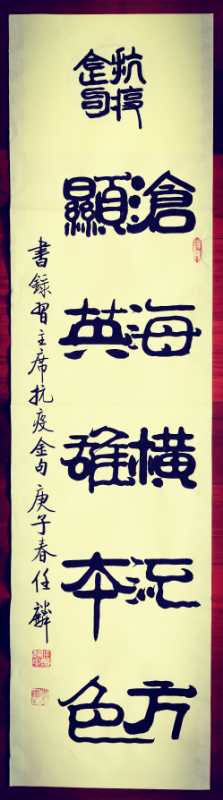 抗疫
金句
滄海橫流方
顯英雄本色
書錄習主席抗疫金句庚子春任麟